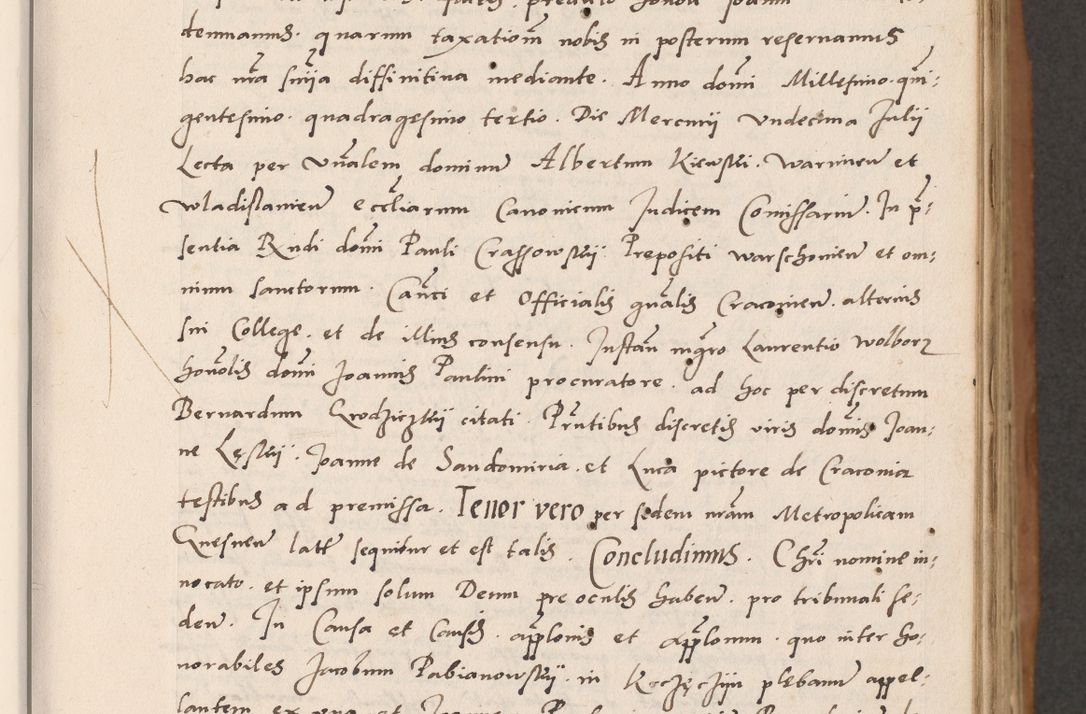 demnamus. quarum taxationem nobis in posterum reservamus
hac nra snīja diffinitiva mediante. Anno domi Millesimo. qui:
gentesimo. quadragesimo tertio. Die Mercurij Undecima Julii
Lecta per Vnalem dominū Albertum Kiewsky. Warmien et
wladislavien eccliarum Canonicum Judicem Comissariū. In p:
sentia Rndi domi Pauli Crassowsky Prepositi warschovien et om:
nium sanctorum. Canci et Officialis gnalis Cracovien. alterius
sui College. et de illius consensu. Instan mgro Laurentio wolborz
honolis domi Joannis Paulini procuratore. ad hoc per discretum
Bernardum citati. Pntibus discretis viris domis Joan:
ne Joanne de Sandomiria. et Luca pictore de Cracovia
testibus ad premissa. Tenor vero per sedem nram Metropolitam
Gnesnen latē sequitur et est talis. Concludimus. Chri nomine in:
vocato. et ipsum solum Deum pre oculis haben. pro tribunali se:
den. In Causa et Causis. applonis et applonum. quo inter ho:
norabiles Jacobum Pabianowsky. in plebanū appel:
lantem ex una et